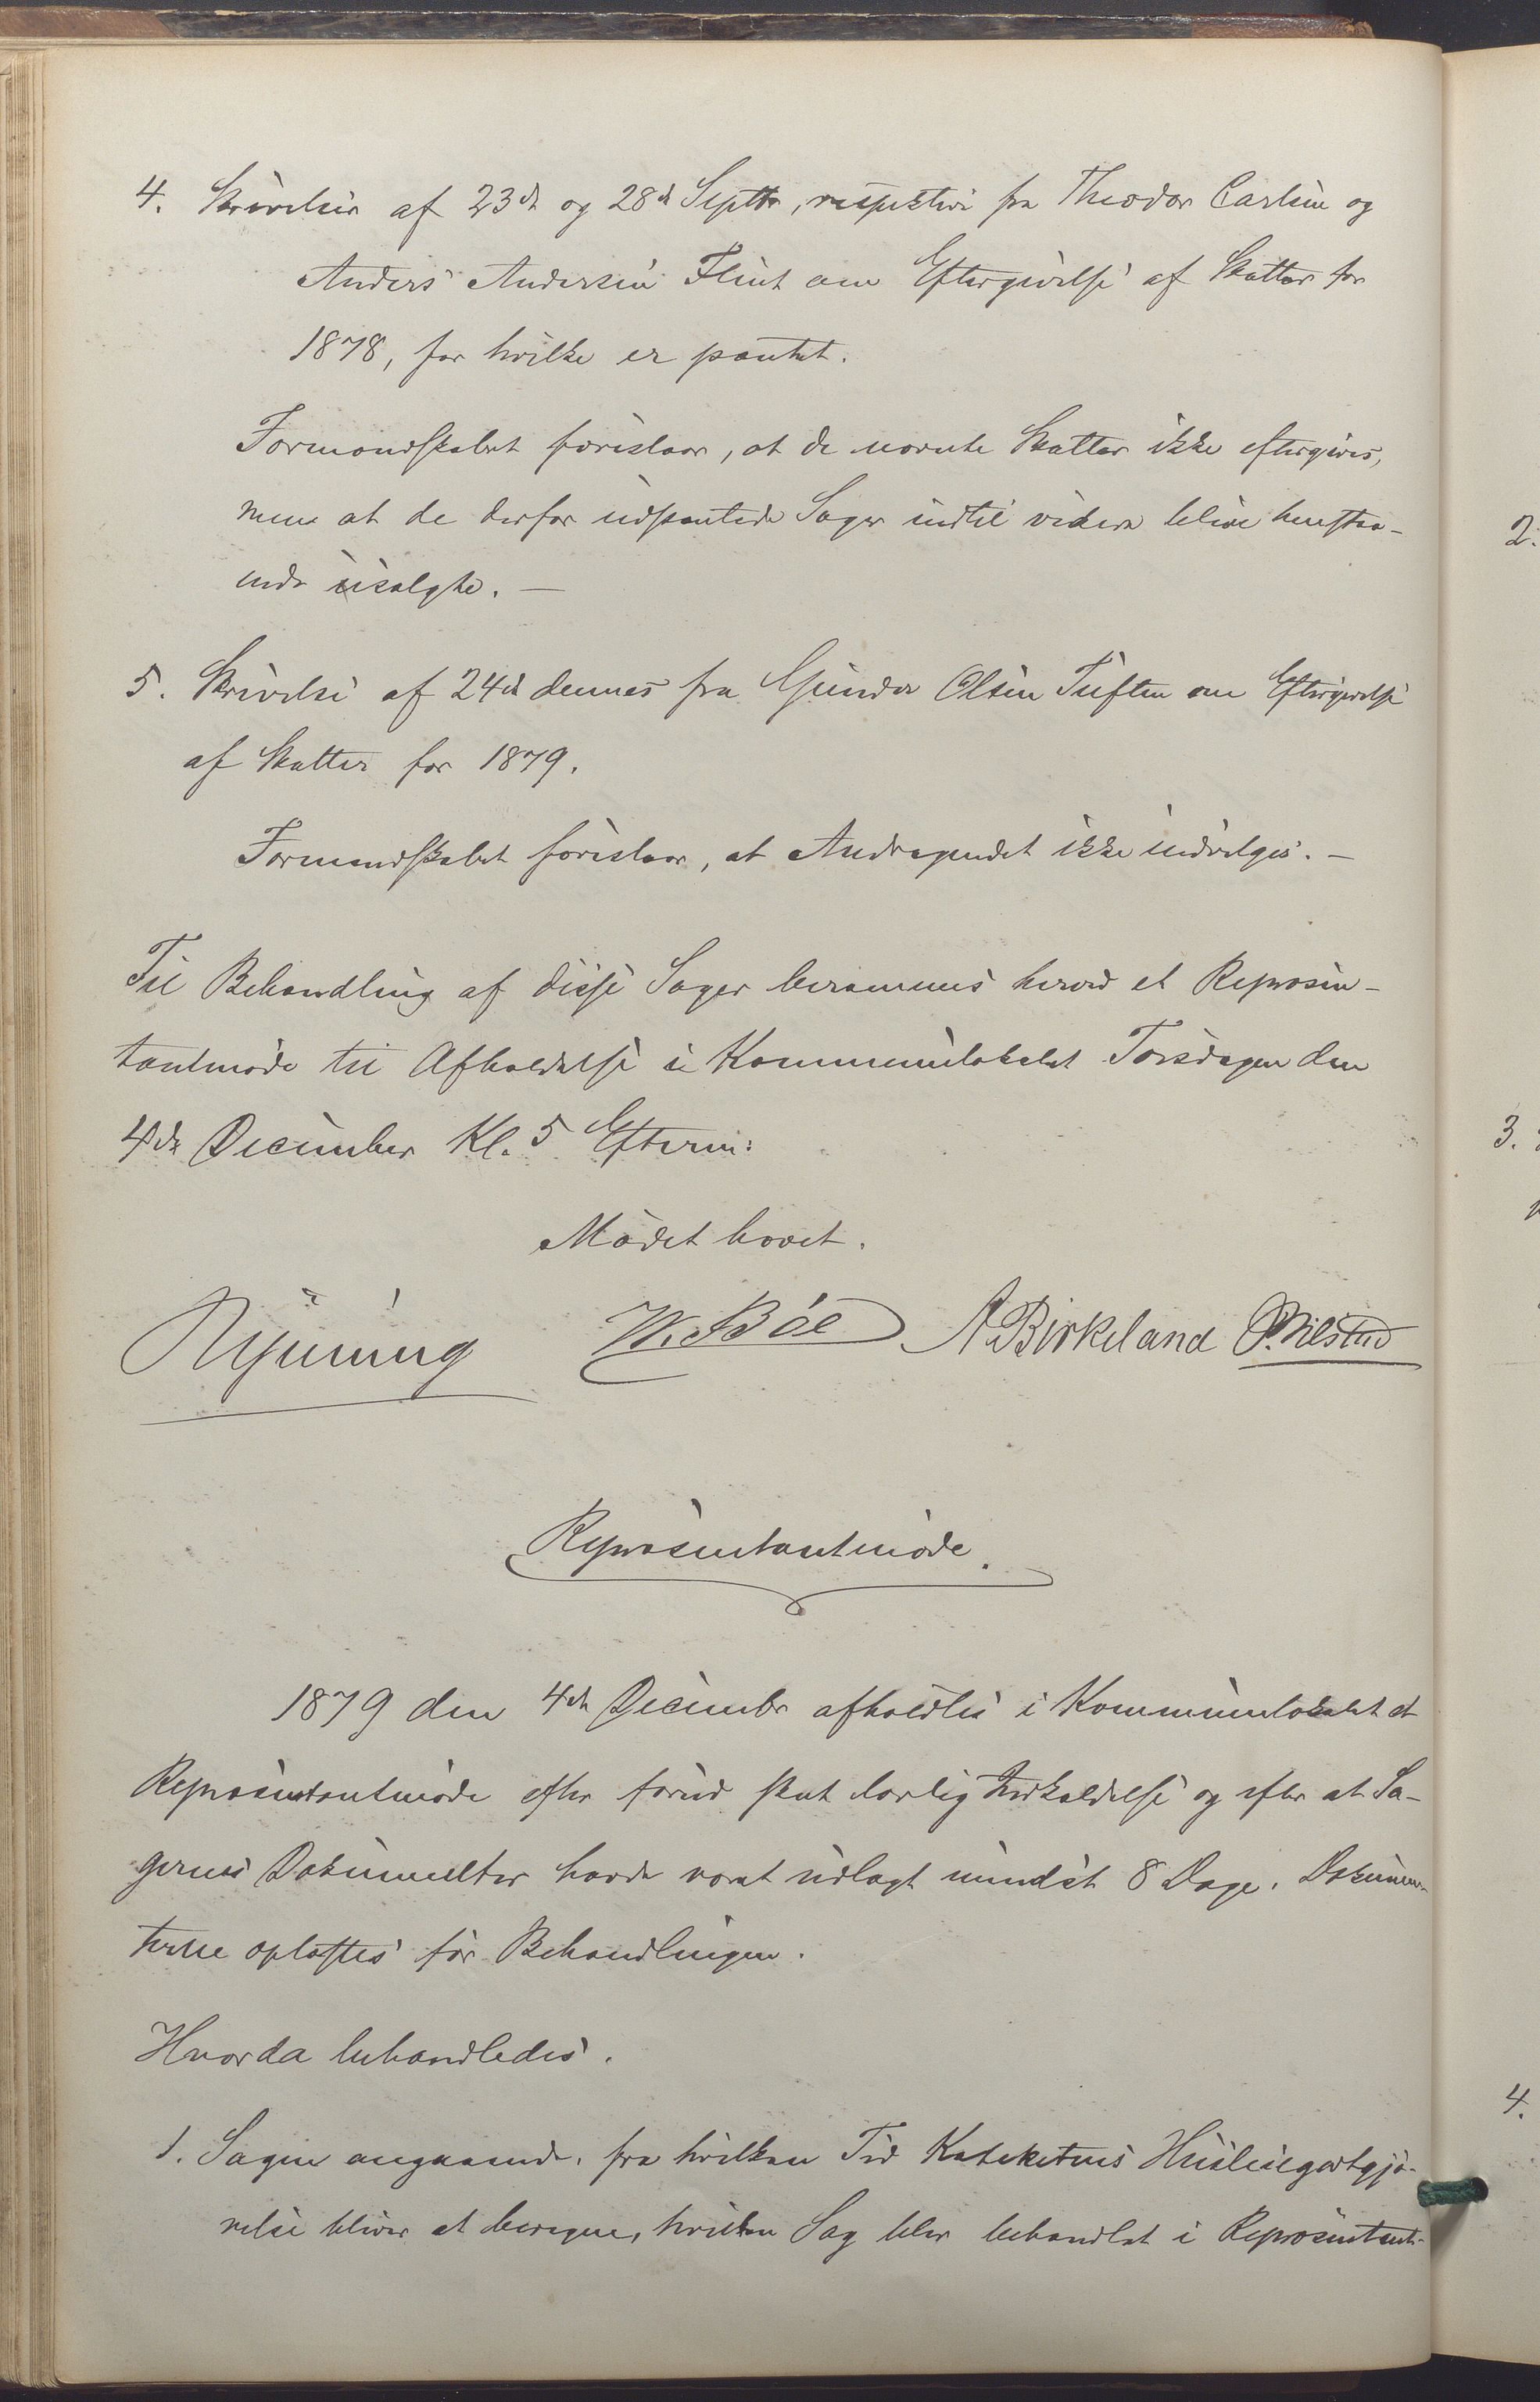 4. Skrivelser af 23de og 28de Septbr, respektive fra Theodor Carlsen og
Anders Andersen Flint om Eftergivelse af Skatter for
1878, for hvilke er pantet.
Formandskabet foreslaar, at de nævnte Skatter ikke eftergives,
men at de derfor udpantede Sager indtil videre blive henstaa-
ende usolgte. —
5. Skrivelse af 24de dennes fra Gunder Olsen Tuften om Eftergivelse
af Skatter for 1879.
Formandskabet foreslaar, at Andragendet ikke indvilges. —
Til Behandling af disse Sager berammes herved et Repræsen-
tantmøde til Afholdelse i Kommunelokalet Torsdagen den
4de December Kl. 5 Efterm:
Mødet hævet.
W. Bøe A Birkeland
Repræsentantmøde.
1879 den 4de Decembr afholdtes i Kommunelokalet et
Repræsentantmøde efter forud skeet lovlig Indkaldelse og efter at Sa-
gernes Dokumenter havde været udlagt mindst 8 Dage. Dokumen-
terne oplæstes før Behandlingen.
Hvorda behandledes.
1. Sagen angaaende, fra hvilken Tid Kateketens Huslæiegodtgjø-
relse bliver at beregne, hvilken Sag blev behandlet i Repræsentant-
2.
3.
4.